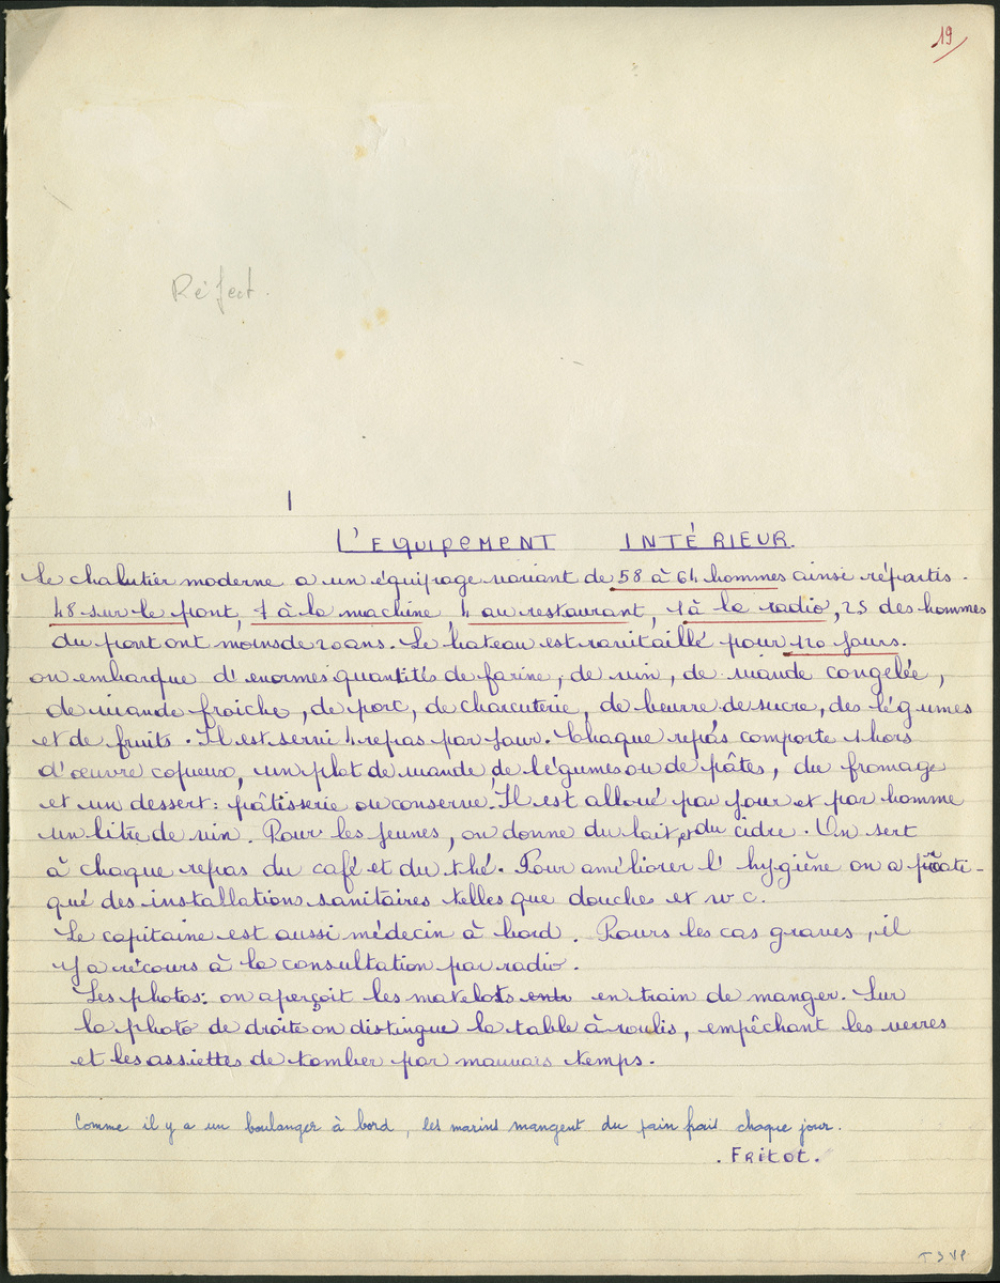 19
Réfect.
L'EQUIPEMENT INTÉRIEUR
Le chalutier moderne a un équipage variant de 58 à 64 hommes ainsi répartis.
48 sur le pont, 7 à la machine, 4 au restaurant, 1 à la radio, 25 des hommes
du pont ont moins de 20 ans. Le bateau est ravitaillé pour 120 jours.
on embarque d'enormes quantités de farine, de vin, de viande congelée,
de viande fraiche, de porc, de charcuterie, de beurre de sucre, des légumes
et de fruits. Il est servi 4 repas par jour. Chaque repas comporte 1 hors
d'œuvre copieux, un plat de viande de légumes ou de pâtes, du fromage
et un dessert: pâtisserie ou conserve. Il est alloué par jour et par homme
un litre de vin. Pour les jeunes, on donne du lait, et du cidre. On sert
à chaque repas du café et du thé. Pour améliorer l'hygiène on a prati-
qué des installations sanitaires telles que douches et w c.
Le capitaine est aussi médecin à bord. Pours les cas graves, il
y a recours à la consultation par radio.
Les photos: on aperçoit les matelots en train de manger. Sur
la photo de droite on distingue la table à roulis, empêchant les verres
et les assiettes de tomber par mauvais temps.
Comme il y a un boulanger à bord, les marins mangent du pain frais chaque jour.
. Fritot.